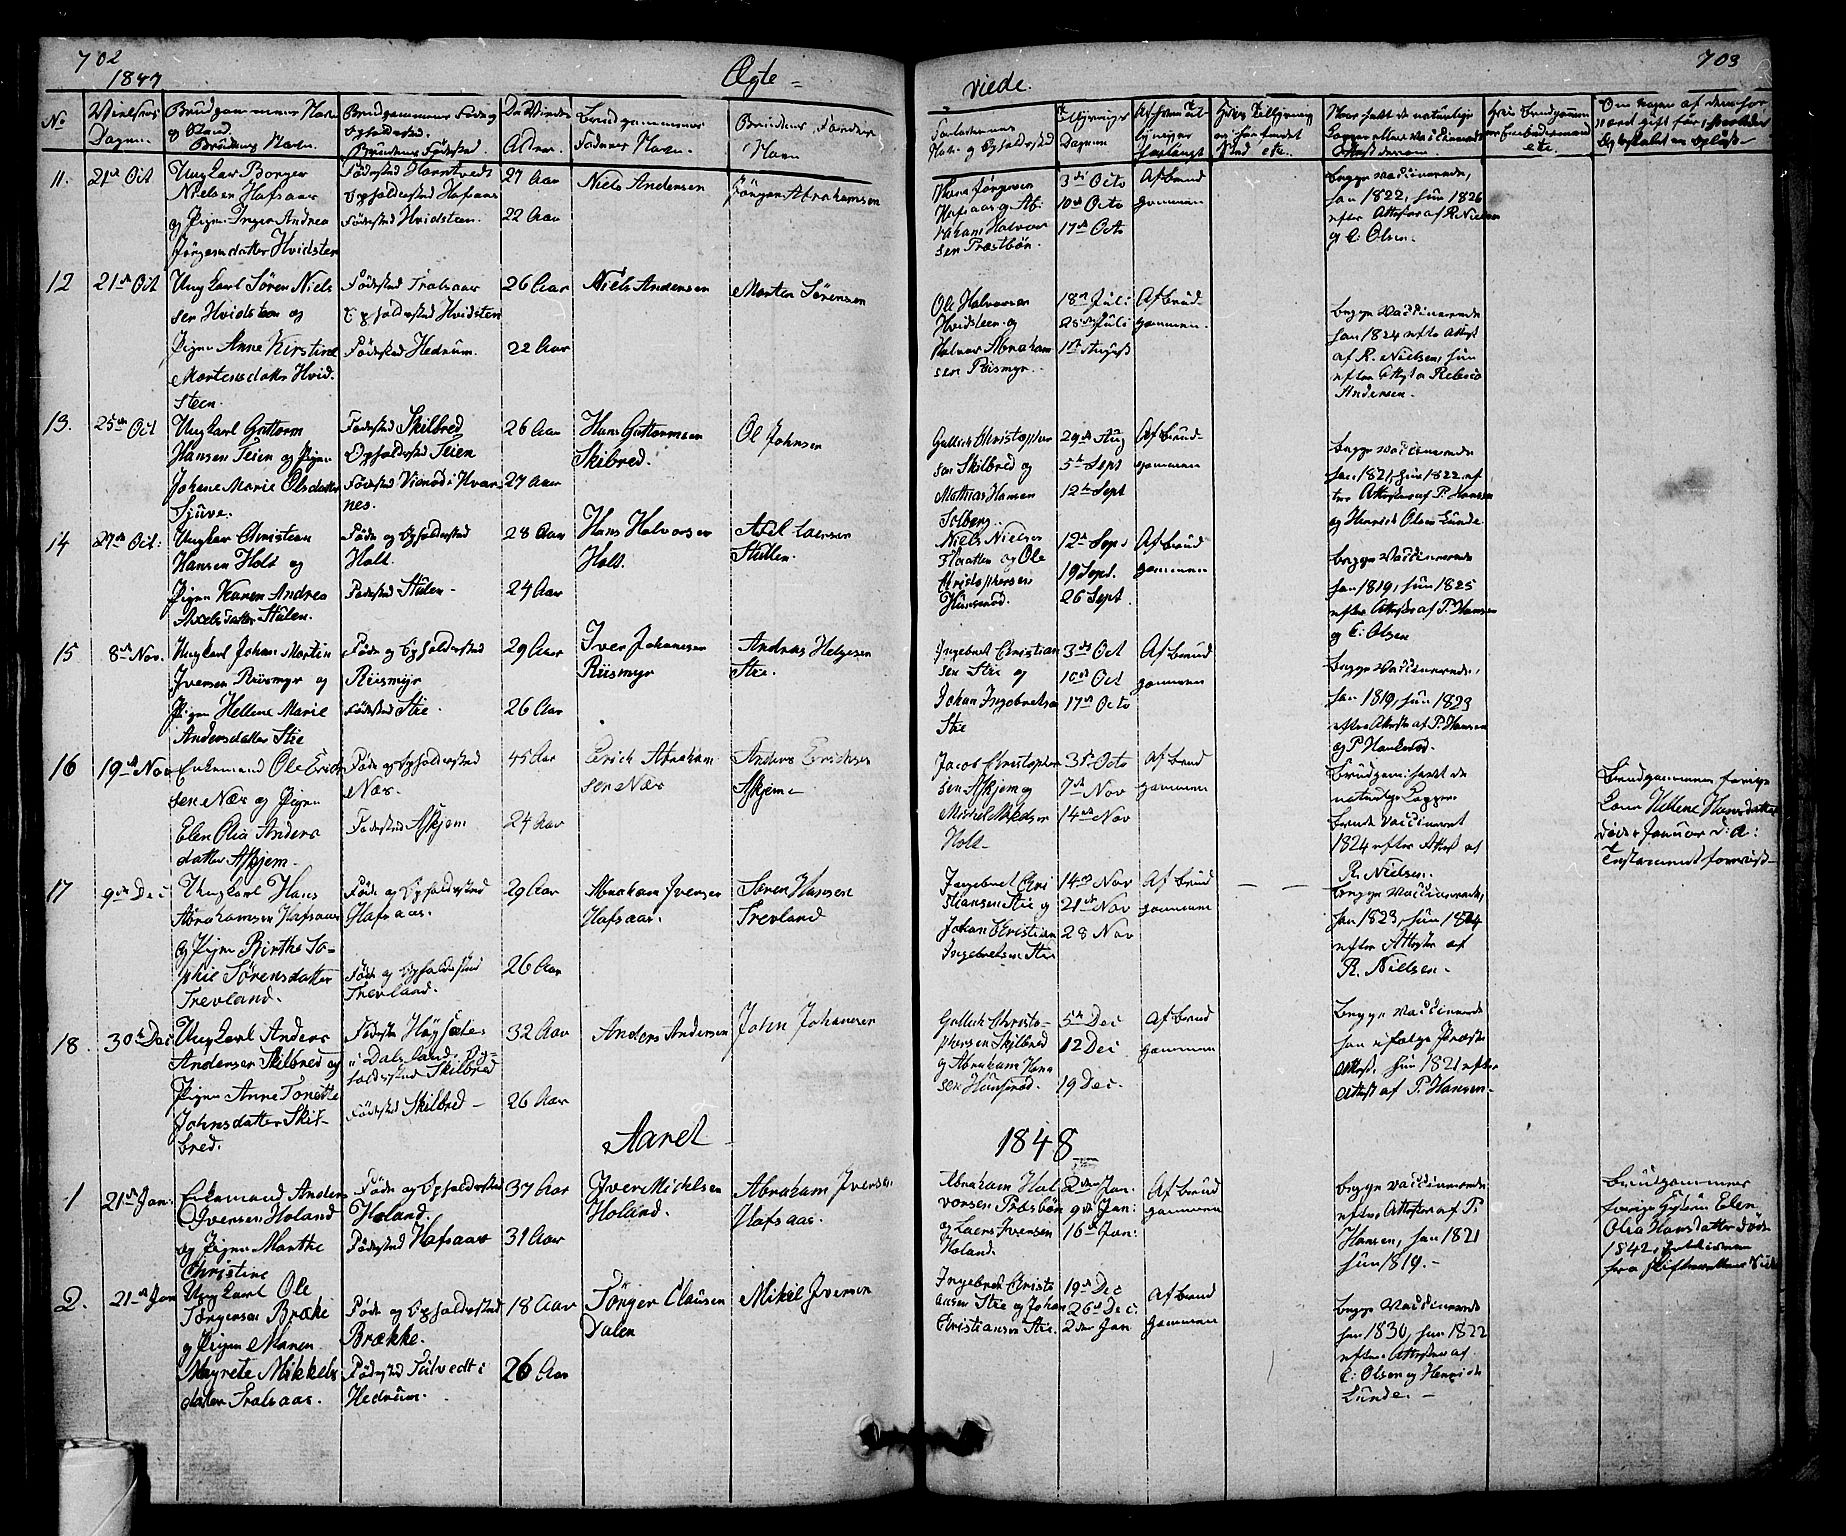 702
1847
Ægte =
viede.
703
No
Vielses
Dagen.
Brudgommenes Navn
og Stand.
Brudens Navn.
Brudgommenes Føde og
Opholdssted.
Brudens Fødested
De Viedes
Alder.
Brudgommenes
Faders Navn.
Brudens Faders
Navn
Forlovernes
Navn og Opholdssted
Dagene
11.
21de Oct
Ungkar Borger
Nielsen Hafsaas
og Pigen Inger Andrea
Jørgensdatter Hvidsteen
Fødested Harntvedt
Opholdssted Hafsaas
Fødested Hvidsteen.
27 Aar
22 Aar
Niels Andersen
Jørgen Abrahamsen
Hans Jørgensen
Hafsaas og Ab
raham Halvor
sen Præstbøn.
3de Octo
10de Octo
17de Octo
Af Brud
gommen
begge vaccinerede,
han 1822, hun 1826
efter Attester af R. Nielsen
og C: Olsen.
12
21de Oct
Ungkarl Søren Niels
sen Hvidsteen og
Pigen Anne Kirstine
Mortensdatter Hvid-
steen.
Fødested Tralsaas
Opholdssted Hvidsteen
Fødested Hedrum.
26 Aar
22 Aar
Niels Andersen
Morten Sørensen
Ole Halvorsen
Hvidsteen og
Halvor Abraham
sen Riismyr.
18de Juli
25de Juli
1ste August
Af Brud-
gommen.
begge vaccinerede
han 1824 efter Attest
af R. Nielsen, hun
efter Attest a Rebecca
Andersen.
13.
25de Oct
Ungkarl Guttorm
Hansen Teien og Pigen
Johane Marie Olsdatter
Sjuve.
Fødested Skilbred
Opholdssted Teien
Fødested Vimod i Hvar-
nes.
26 Aar
27 Aar
Hans Guttormsen
Skibred.
Ole Johnsen
Gullich Christopher
sen Skilbred og
Mathias Hansen
Solberg.
29de Aug
5te Sept
12te Sept
Af Brud-
gommen
begge vaccinerede
han 1821, hun 1822, ef
ter Attester af P. Hansen
og Henrich Olsen Lunde.
14
27de Oct:
Ungkar Christian
Hansen Holt og
Pigen Karen Andrea
Axelsdatter Stulen.
Føde og Opholdssted
Holt.
Fødested Stulen -
28 Aar
24 Aar
Hans Halvorsen
Holt.
Axel Larsen
Stullen
Niels Nielsen
Floatten og Ole
Christophersen
Hunserød.
12te Sept
19 Sept.
26 Sept.
Af Brud
gommen
begge vaccinerede
han 1819, hun 1825
efter Attester af P. Hansen
og C: Olsen
15
8de Nov.
Ungkarl Johan Martin
Iversen Riismyr og
Pigen Hellene Marie
Andersdatter Stie
Føde og Opholdssted
Riismyr
Fødested Stie.
29 Aar
26 Aar
Iver Johansen
Riismyr
Andreas Helgesen
Stie.
Ingebret Christian
sen Stie og
Johan Ingebretsen
Stie
3de Oct
10de Oct
17de Octo
Af Brud
gommen
begge vaccinerede,
han 1819, hun 1823
efter Attester af P. Hansen
og P Hankerød.
16
19de Nov
Enkemand Ole Erich
sen Nær og Pigen
Elen Olia Anders
datter Askjem.
Føde og Opholdssted
Nær.
Fødested Askjem
45 Aar
24 Aar
Erich Abraham
sen Nær
Anders Erichsen
Askjem -
Jacob Christopher
sen Askjem og
Michel Mikelsen
Holt -
31te Octo
7de Nov
14de Nov
Af Brud
gommen
Brudgom: havt de
naturlige Kopper
Brude vaccineret
1824 efter Attest af
R. Nielsen.
Brudgommens forige
Kone Hellene Hansdatter
døde i Januar d: A:
Testament forevist -
17
9de Dec
Ungkarl Hans
Abrahamsen Hafsaas
og Pigen Birthe So-
phie Sørensdatter
Trevland.
Føde og Opholdssted
Hafsaas.
Føde og Opholdssted
Trevland.
29 Aar
26 Aar
Abraham Iversen
Hafsaas.
Søren Hansen
Trevland
Ingebret Chri
stiansen Stie og
Johan Christian
Ingebretsen Stie
14de Nov
21de Nov
28 Nov
Af Brud
gommen
begge vaccinerede,
han 1823, hun 1824
efter Attester af
R. Nielsen.
18.
30te Dec
Ungkarl Anders
Andersen Skilbred og
Pigen Anne Tonette
Johnsdatter Skil-
bred.
Fødested Høysæter
i Dalsland. Op-
holdssted Skilbred
Fødested Skilbred -
32 Aar
26 Aar
Anders Andersen
John Johansen
Gullich Christo-
phersen Skjilbred
og Abraham Han
sen Hunserød.
5te Dec
12 Dec
19 Dec.
Af Brud
gommen
begge vaccinerede
han ifølge Præste
Attest, hun 1821 efter
Attest af P. Hansen -
Aaret
1848
1
21de Jan:
Enkemand Anders
Iversen Holand
og Pigen Marthe
Christine
Føde og Opholdssted
Holand.
Fødested Hafsaas
37 Aar
31 Aar
Iver Michelsen
Holand.
Abraham Iversen
Hafsaas.
Abraham Hal
vorsen Præsbøn
og Laers Iversen
Holand.
2den Jan.
9de Jan:
16de Jan:
Af Brud
gommen
begge vaccinerede
efter Attester af P.
Hansen, han 1821
hun 1819. -
Brudgommens
forige Hustru Elen
Olia Hansdatter døde
1842,
fra Skifteretten
2.
21de Jan
Ungkarl Ole
Tørgersen Brække
og Pigen Maren
Magrete Mikkels
datter Tralsaas.
Føde og Opholdssted
Brække.
Fødested Tulvedt i
Hedrum.
18 Aar
26 Aar
Törger Clausen
Dalen
Mikel Iversen
Ingebret Christi
ansen Stie og Johan
Christiansen Stie.
19de Dec
26de Dec:
2den Jan
Af Brud
gommen
begge vaccinerede
han 1830, hun 1822
efter Attester af
C: Olsen og Henrich
Lunde. -